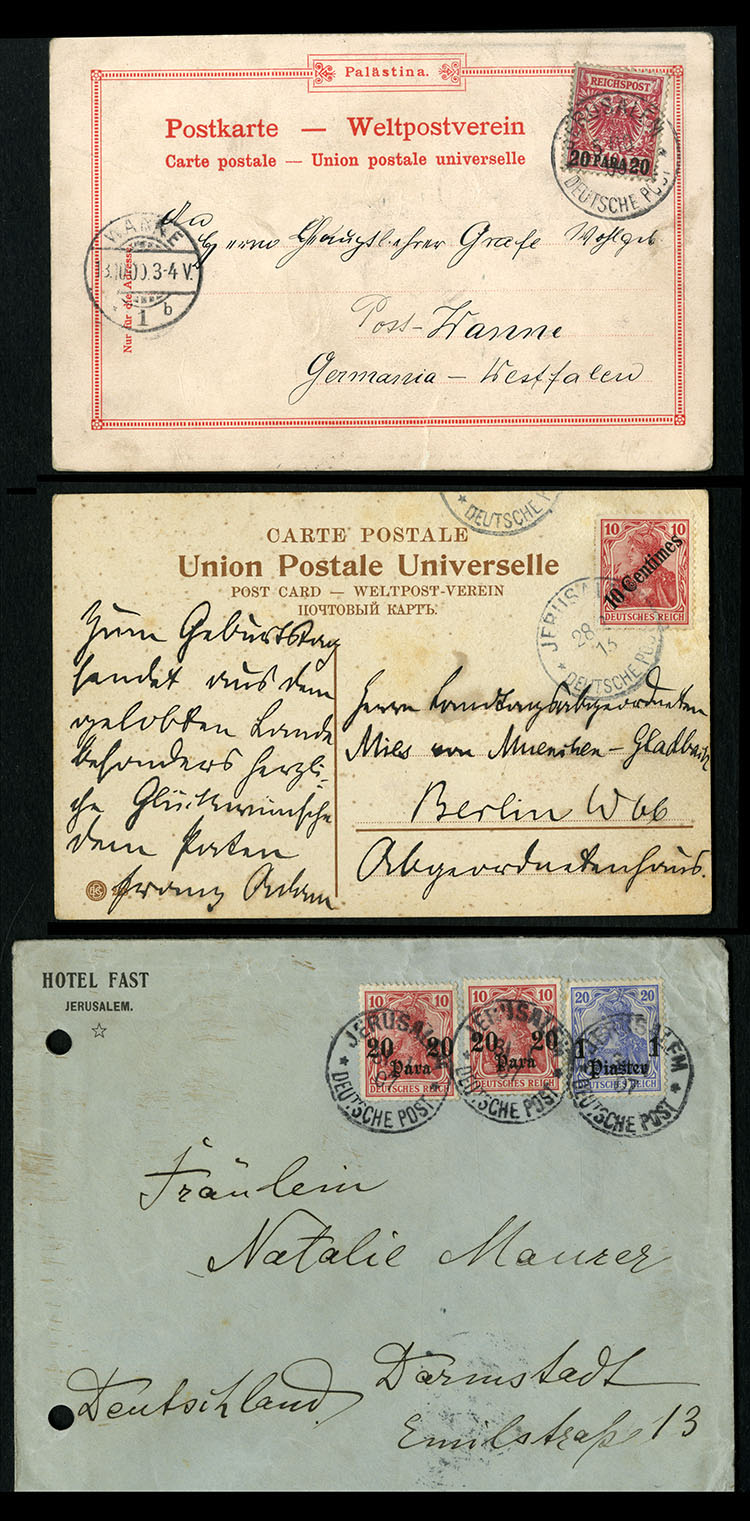 Palästina.
Postkarte — Weltpostverein
Carte postale — Union postale universelle
REICHSPOST
20 PARA 20
JERUSALEM
DEUTSCHE POST
WANNE
3-4 V.
1 b
Nur für die Adresse.
An
Herrn Hauptlehrer Grafe Wohlgeb.
Post-Wanne
Germania — Westfalen
DEUTSCHE P
CARTE POSTALE
Union Postale Universelle
POST CARD — WELTPOST-VEREIN
ПОЧТОВЫЙ КАРТЪ.
10 10
10 Centimes
DEUTSCHES REICH
JERUSAL
28
13
DEUTSCHE POST
Zum Geburtstag
sendet aus dem
gelobten Lande
besonders herzli-
che Glückwünsche
dem Paten
Franz Adam
Herrn Landtagsabgeordneten
Mies von Muenchen-Gladbach
Berlin W 66
Abgeordnetenhaus.
HOTEL FAST
JERUSALEM.
10 10
20 20
Para
DEUTSCHES REICH
JERUSALEM
DEUTSCHE POST
10 10
20 20
Para
DEUTSCHES REICH
JERUSALEM
DEUTSCHE POST
20 20
1 1
Piaster
DEUTSCHES REICH
JERUSALEM
DEUTSCHE POST
Fräulein
Natalie Maurer
Darmstadt
Deutschland
Emilstraße 13